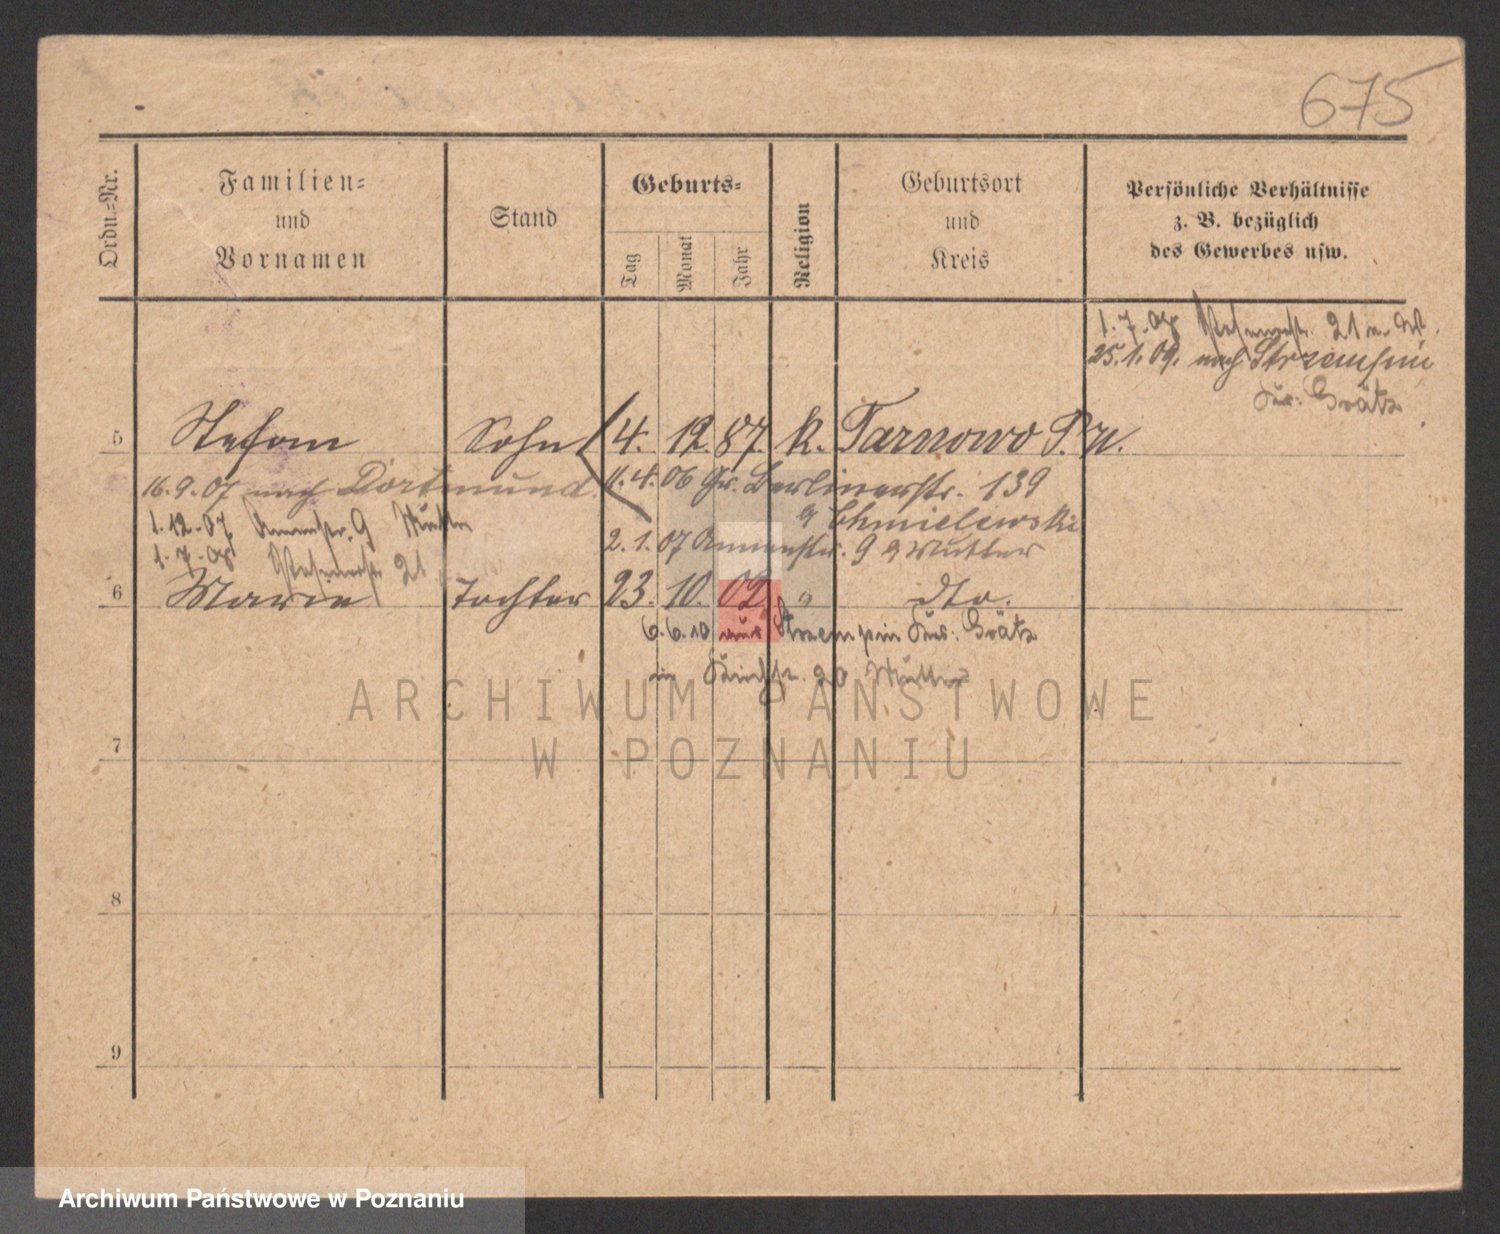 675
Ordn.-Nr.
Familien-
und
Vornamen
Stand
Geburts-
Tag
Monat
Jahr
Religion
Geburtsort
und
Kreis
Persönliche Verhältnisse
z. B. bezüglich
des Gewerbes usw.
1.7.08 21
25.1.09. nach Strzempin
Krs: Grätz
5 Stefan Sohn 4. 12. 87. k. Tarnowo P.W.
16.9.07 nach Dortmund. 11.4.06 Gr. Berlinerstr. 139
b Chmielewski
1.12.07 Annenstr. 9 Mutter
2.1.07 Annenstr. 9 b Mutter
1.7.08 21
6 Marie Tochter 23. 10. 02. " dto.
6.6.10 aus Strzempin Krs: Grätz
in 20 Mutter
7
8
9
ARCHIWUM PAŃSTWOWE
W POZNANIU
Archiwum Państwowe w Poznaniu